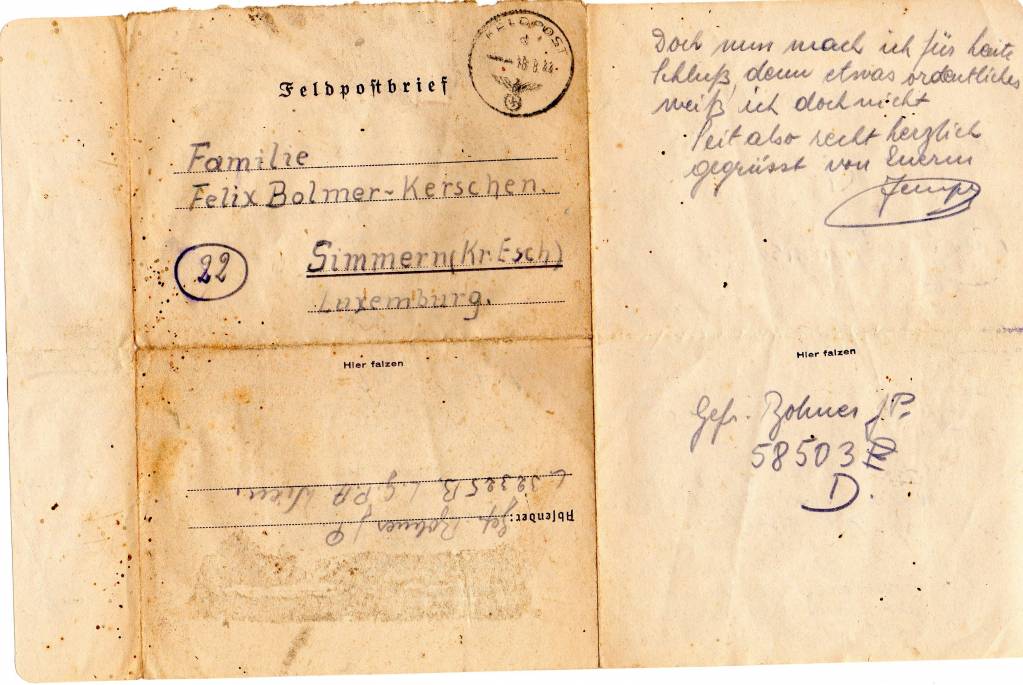 Feldpostbrief
FELDPOST
18.8.44
Familie
Felix Bolmer-Kerschen.
22
Simmern (Kr. Esch)
Luxemburg.
Hier falzen
Absender: Gefr. Bohner J P
L 32325 B. L.g.P.A Wien.
Doch nun mach ich für heute
Schluß, denn etwas ordentliches
weiß ich doch nicht
Seit also recht herzlich
gegrüsst von Euerm
Jempy
Hier falzen
Gefr. Bohner J.P.
58503
D.